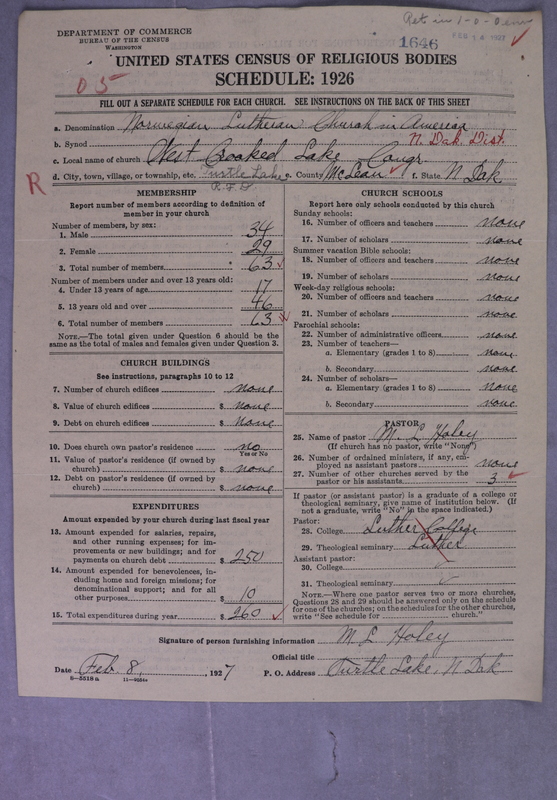 Ret in 1-0-Dem
DEPARTMENT OF COMMERCE
BUREAU OF THE CENSUS
WASHINGTON
1646
FEB 14 1927
UNITED STATES CENSUS OF RELIGIOUS BODIES
SCHEDULE: 1926
05
FILL OUT A SEPARATE SCHEDULE FOR EACH CHURCH. SEE INSTRUCTIONS ON THE BACK OF THIS SHEET
a. Denomination Norwegian Lutheran Church in America
b. Synod N. Dak. Dist.
c. Local name of church West Crooked Lake Congr.
d. City, town, village, or township, etc. Turtle Lake e. County McLean f. State N Dak
R
R.F.D
MEMBERSHIP
Report number of members according to definition of member in your church
Number of members, by sex:
1. Male 34
2. Female 29
3. Total number of members 63
Number of members under and over 13 years old:
4. Under 13 years of age 17
5. 13 years old and over 46
6. Total number of members 63
NOTE.—The total given under Question 6 should be the same as the total of males and females given under Question 3.
CHURCH BUILDINGS
See instructions, paragraphs 10 to 12
7. Number of church edifices none
8. Value of church edifices $ none
9. Debt on church edifices $ none
10. Does church own pastor's residence no
Yes or No
11. Value of pastor's residence (if owned by church) $ none
12. Debt on pastor's residence (if owned by church) $ none
EXPENDITURES
Amount expended by your church during last fiscal year
13. Amount expended for salaries, repairs, and other running expenses; for improvements or new buildings; and for payments on church debt $ 250
14. Amount expended for benevolences, including home and foreign missions; for denominational support; and for all other purposes $ 10
15. Total expenditures during year $ 260
CHURCH SCHOOLS
Report here only schools conducted by this church
Sunday schools:
16. Number of officers and teachers none
17. Number of scholars none
Summer vacation Bible schools:
18. Number of officers and teachers none
19. Number of scholars none
Week-day religious schools:
20. Number of officers and teachers none
21. Number of scholars none
Parochial schools:
22. Number of administrative officers none
23. Number of teachers—
a. Elementary (grades 1 to 8) none
b. Secondary none
24. Number of scholars—
a. Elementary (grades 1 to 8) none
b. Secondary none
PASTOR
25. Name of pastor M. L. Holey
(If church has no pastor, write "None")
26. Number of ordained ministers, if any, employed as assistant pastors none
27. Number of other churches served by the pastor or his assistants 3
If pastor (or assistant pastor) is a graduate of a college or theological seminary, give name of institution below. (If not a graduate, write "No" in the space indicated.)
Pastor:
28. College Luther College
29. Theological seminary Luther
Assistant pastor:
30. College
31. Theological seminary
NOTE.—Where one pastor serves two or more churches, Questions 28 and 29 should be answered only on the schedule for one of the churches; on the schedules for the other churches, write "See schedule for church."
Signature of person furnishing information M L Holey
Official title
Date Feb. 8, 1927 P. O. Address Turtle Lake, N Dak